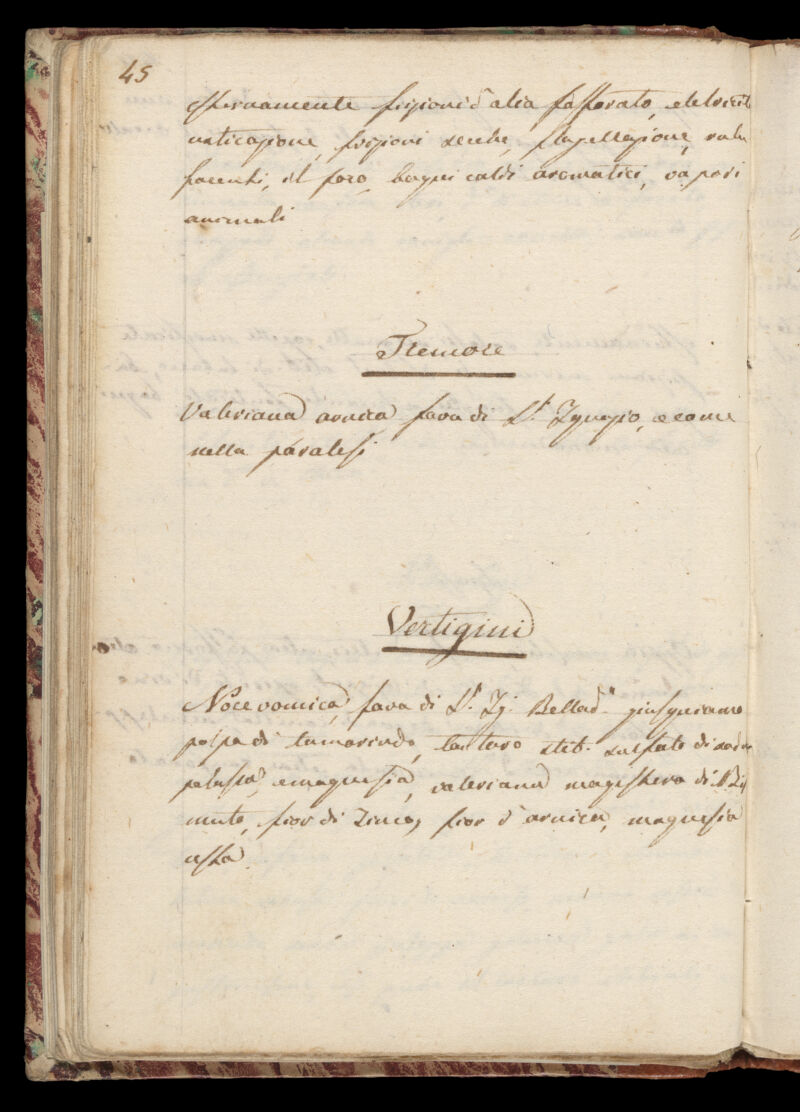 45
esternamente frizioni d'olio fosforato, eletricità
urticazione, frizioni secche, flagellazione, rube
facenti, il foco, bagni caldi aromatici, vapori
animali
Tremore
Valeriana arnica fava di S.t Ignazio, e come
nella paralesi
Vertigini
Noce vomica, fava di S.t Ig. Bellad.a giusquiamo
polpa di tamarindo, tartaro stib. sulfato di soda
potassa, e magnesia, valeriana magistero di Bis
muto, fior di Zinco, fior d'arnica, magnesia
usta